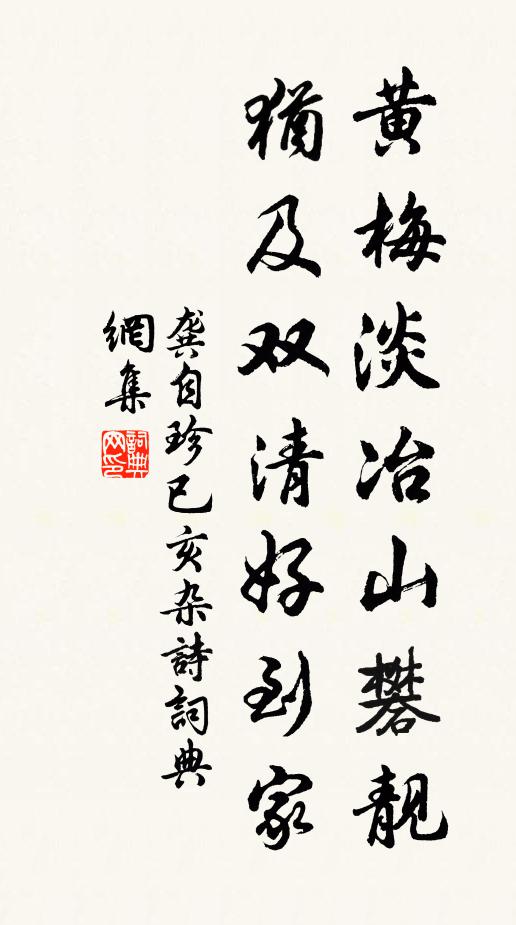 黄梅淡冶山礬靚
猶及双清好到家
龔自珍己亥杂詩詞典
網集
詞典
网印